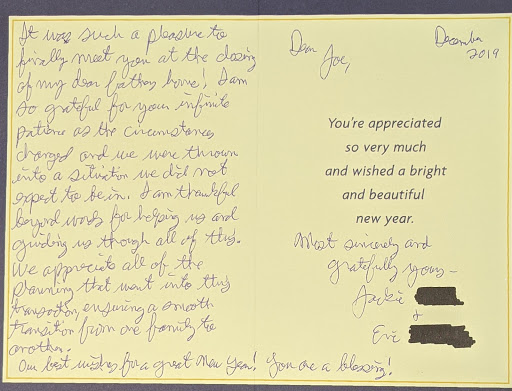 It was such a pleasure to
finally meet you at the closing
of my dear fathers home! I am
so grateful for your infinite
patience as the circumstances
changed and we were thrown
into a situation we did not
expect to be in. I am thankful
beyond words for helping us and
guiding us though all of this.
We appreciate all of the
planning that went into this
transaction, ensuring a smooth
transition from one family to
another.
Our best wishes for a great New Year! You are a blessing!
December
2019
Dear
Joe,
You're appreciated
so very much
and wished a bright
and beautiful
new year.
Most sincerely and
gratefully yours -
Jackie
+
Eric